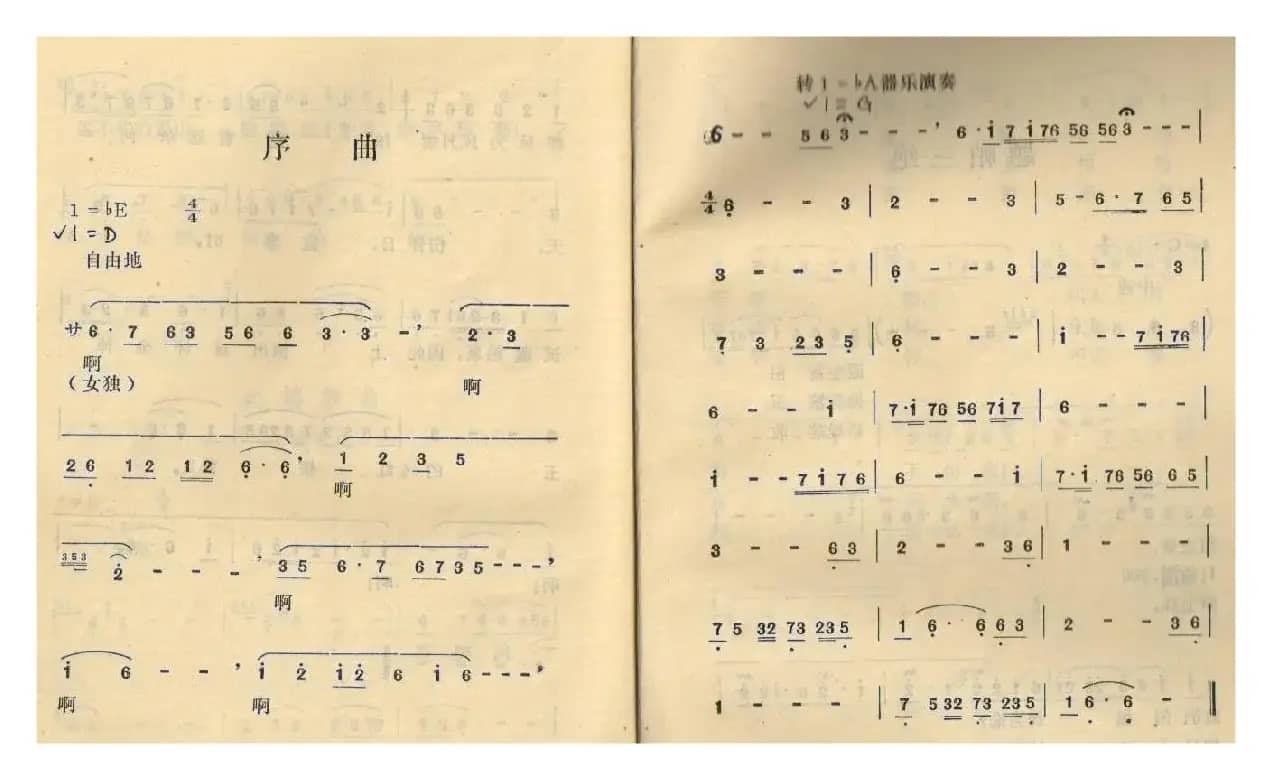 序 曲
1=♭E 4/4
✓1=D
自由地
サ6·7 63 56 6 3·3 -’ 2·3
啊 啊
(女独)
26 12 12 6·6’ 1 2 3 5
啊
353 2 - - -’ 35 6·7 6735---’
啊
i 6 - -’ i 2 i2 6 i 6---’
啊 啊
转1=♭A器乐演奏
✓1=G
6 - - 563 - - -’ 6·i 7i76 56 563 - - -
4/4 6 - - 3 | 2 - - 3 | 5 - 6·7 65 |
3 - - - | 6 - - 3 | 2 - - 3 |
7 3 23 5 | 6 - - - | i - - 7i76 |
6 - - i | 7·i 76 56 7i7 | 6 - - - |
i - - 7i76 | 6 - - i | 7·i 76 56 65 |
3 - - 63 | 2 - - 36 | 1 - - - |
7 5 32 73 235 | 1 6· 663 | 2 - - 36 |
1 - - - | 7· 532 73 235 | 16·6· - ‖